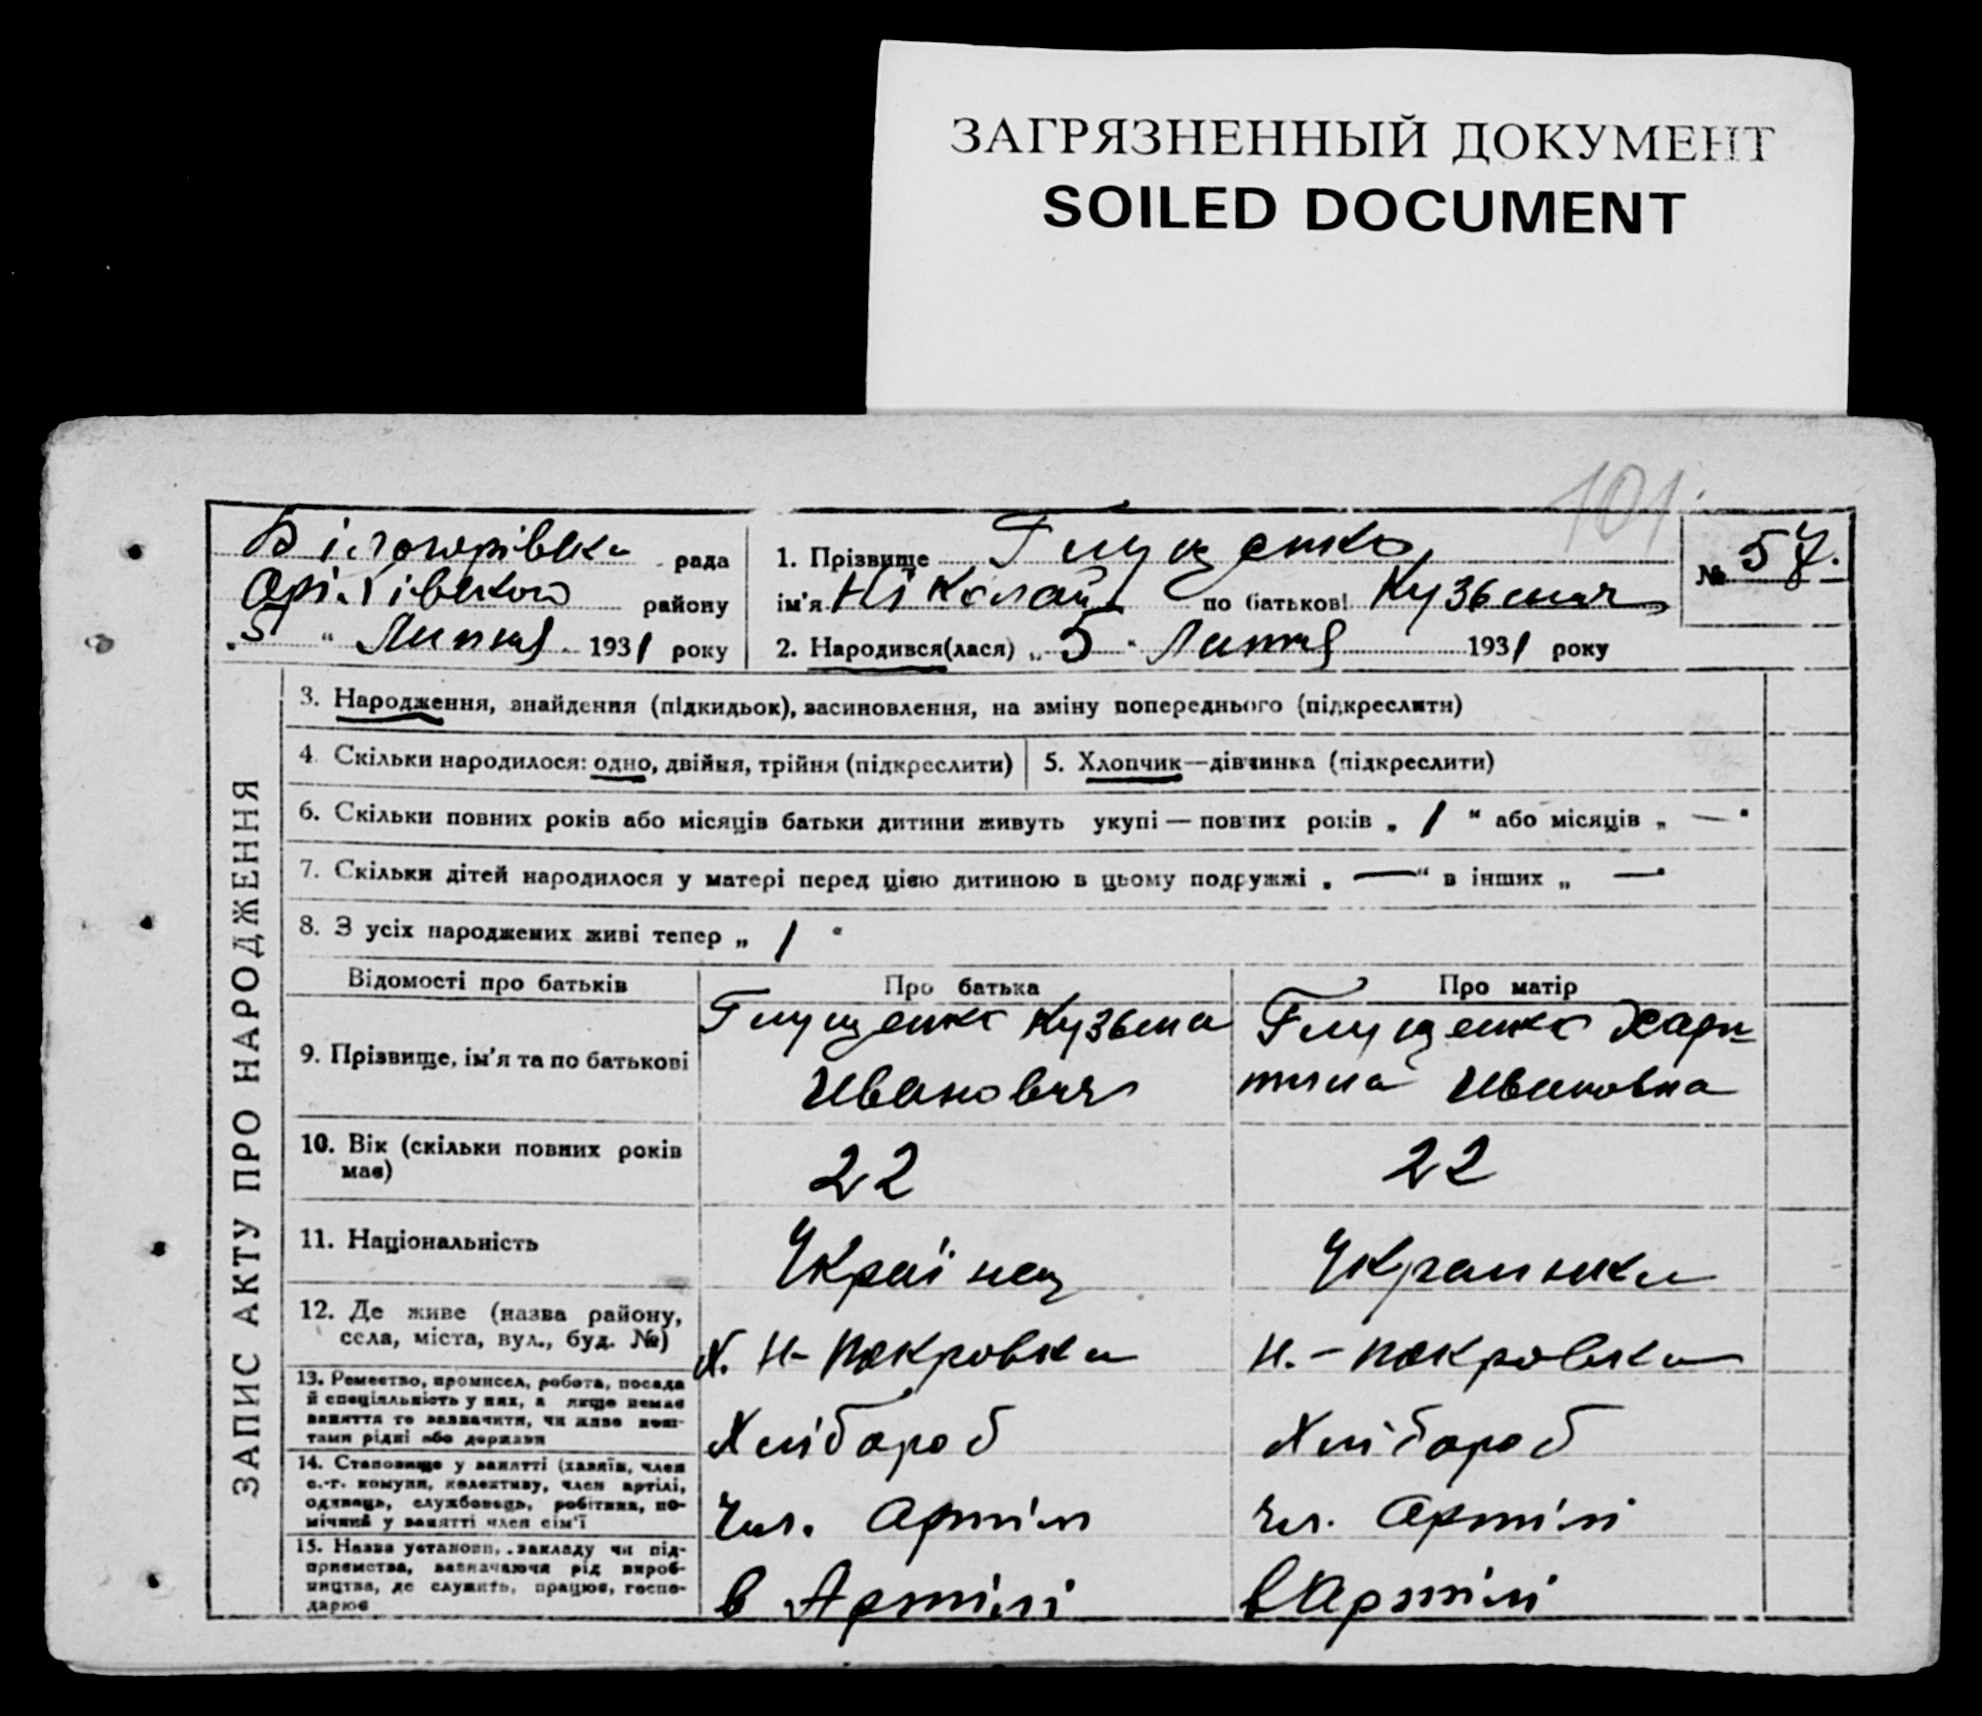 ЗАГРЯЗНЕННЫЙ ДОКУМЕНТ
SOILED DOCUMENT
101
Білогорівська рада
Оріхівского району
„5“ Липня 1931 року
1. Прізвище Глущенко
ім'я Ніколай по батькові Кузьмич
№ 57.
2. Народився(лася) „5“ Липня 1931 року
ЗАПИС АКТУ ПРО НАРОДЖЕННЯ
3. Народження, знайдення (підкидьок), засиновлення, на зміну попереднього (підкреслити)
4. Скільки народилося: одно, двійня, трійня (підкреслити)
5. Хлопчик—дівчинка (підкреслити)
6. Скільки повних років або місяців батьки дитини живуть укупі — повних років „ 1 “ або місяців „ — “
7. Скільки дітей народилося у матері перед цією дитиною в цьому подружжі „ — “ в інших „ — “
8. З усіх народжених живі тепер „ 1 “
Відомості про батьків Про батька Про матір
9. Прізвище, ім'я та по батькові
Глущенко Кузьма
Иванович
Глущенко Хари-
тина Ивановна
10. Вік (скільки повних років
має)
22
22
11. Національність
Українец
Украинка
12. Де живе (назва району,
села, міста, вул., буд. №)
х. Н-Покровка
Н.-Покровка
13. Ремество, промисел, робота, посада
й спеціяльність у них, а якщо немає
заняття то зазначити, чи живе кош-
тами рідні або держави
Хлібороб
Хлібороб
14. Становище у занятті (хазяїн, член
с.-г. комуни, колективу, член артілі,
одинець, службовець, робітник, по-
мічний у занятті член сім'ї
Чл. Артілі
Чл. Артілі
15. Назва установи, закладу чи під-
приємства, зазначаючи рід вироб-
ництва, де служить, працює, госпо-
дарює
в Артілі
в Артілі